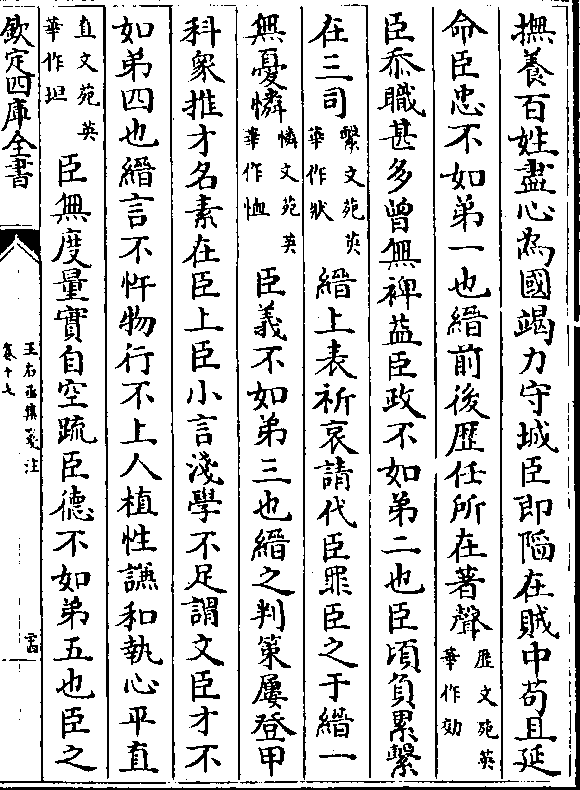 撫養百姓盡心為國竭力守城臣即陥在賊中苟且延
命臣忠不如弟一也縉前後歴任所在著聲歴文苑英華作効
臣忝職甚多曾無裨益臣政不如弟二也臣頃負累繫
在三司繫文苑英華作狀縉上表祈哀請代臣罪臣之于縉一
無憂憐憐文苑英華作恤臣義不如弟三也縉之判策屢登甲
科衆推才名素在臣上臣小言淺學不足謂文臣才不
如弟四也縉言不忤物行不上人植性謙和執心平直
直文苑英華作坦臣無度量實自空疏臣德不如弟五也臣之
欽定四庫全書
王右丞集箋注
卷十七